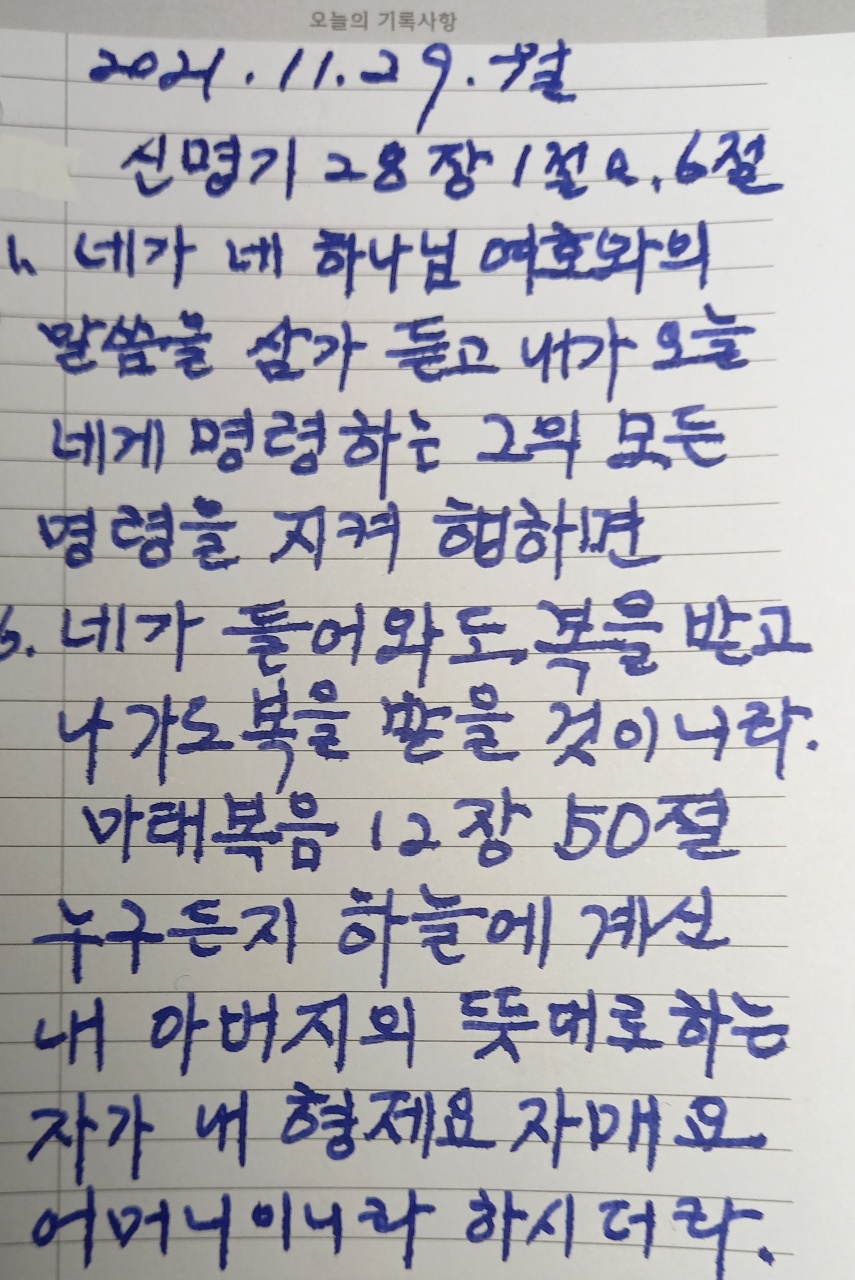 오늘의 기록사항
2021.11.29.월
신명기 28장 1절a.6절
1. 네가 네 하나님 여호와의
말씀을 삼가 듣고 내가 오늘
네게 명령하는 그의 모든
명령을 지켜 행하면
6. 네가 들어와도 복을 받고
나가도 복을 받을 것이니라.
마태복음 12장 50절
누구든지 하늘에 계신
내 아버지의 뜻대로 하는
자가 내 형제요 자매요
어머니이니라 하시더라.